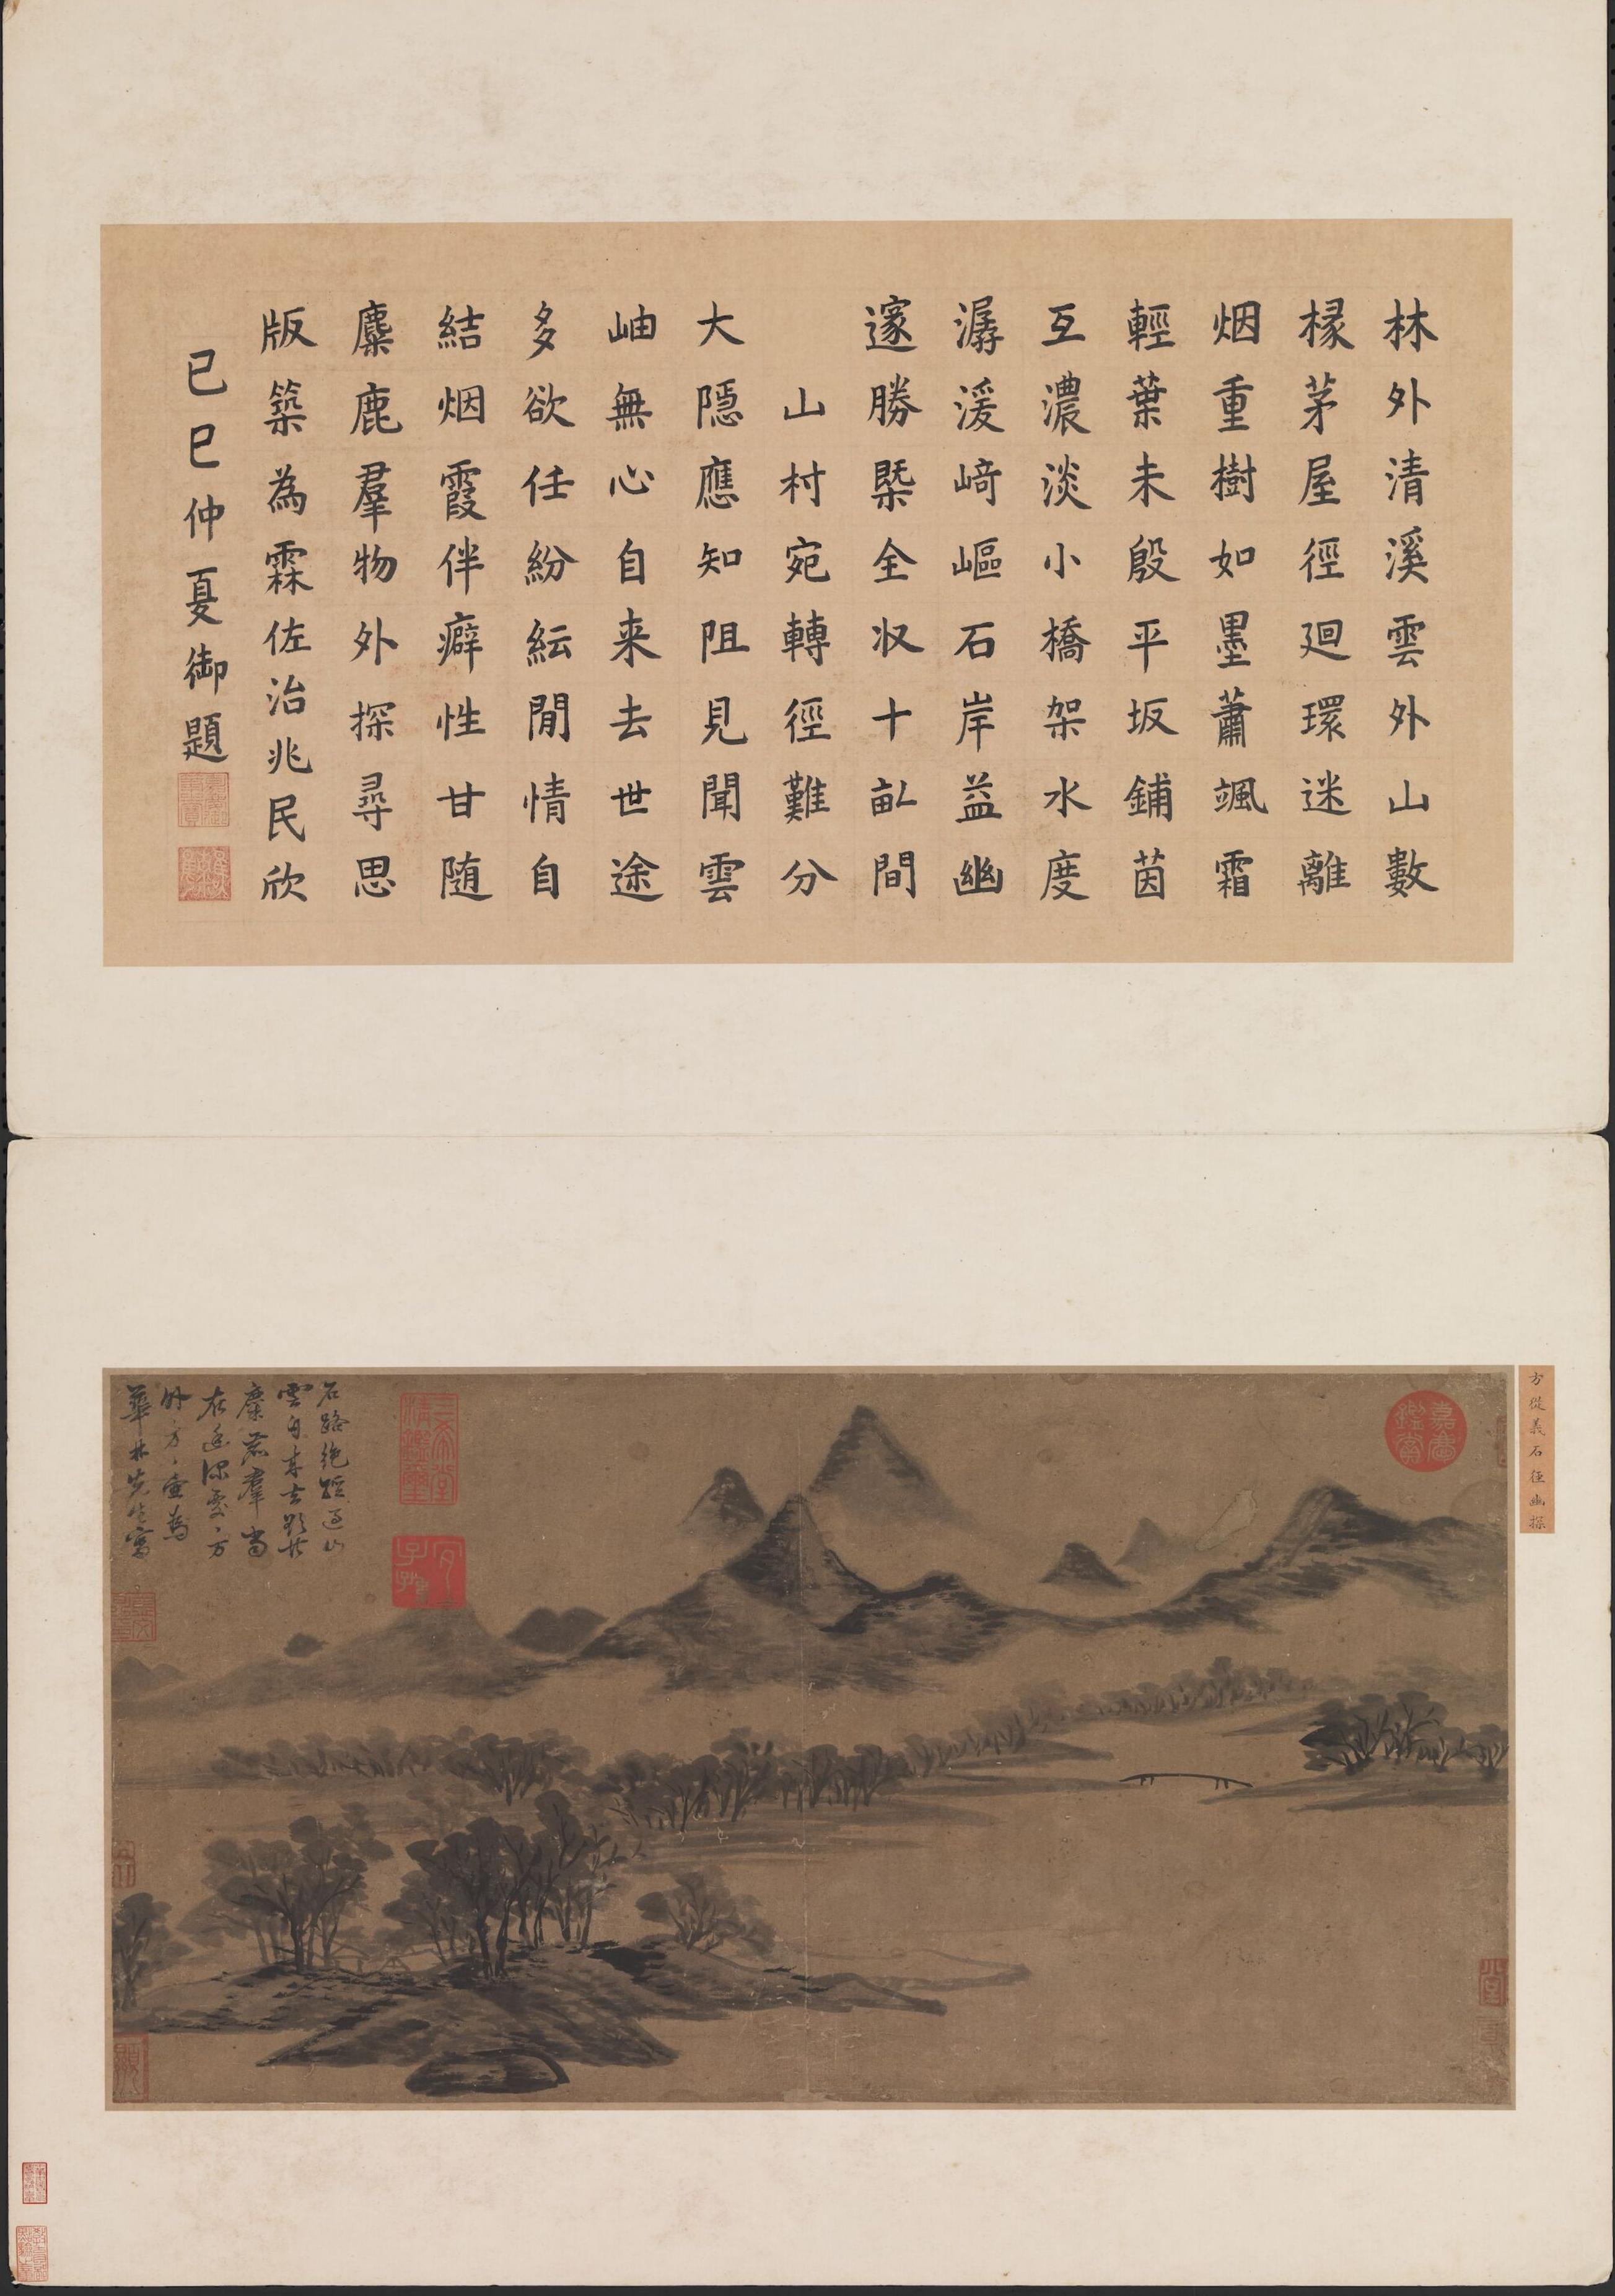 林外清溪雲外山數
椽茅屋徑廻環迷離
烟重樹如墨蕭颯霜
輕葉未殷平坂鋪茵
互濃淡小橋架水度
潺湲崎嶇石岸益幽
邃勝槩全収十畝間
山村宛轉徑難分
大隱應知阻見聞雲
岫無心自来去世途
多欲任紛紜閒情自
結烟霞伴癖性甘随
麋鹿羣物外探尋思
版築為霖佐治兆民欣
己巳仲夏御題
方從義石徑幽探
石路絶踪過山
雲自来去影共
麋鹿羣當
在逺深處方
外方壺為
華林先生寫
嘉慶鑑賞
三希堂精鑑璽
宜子孫